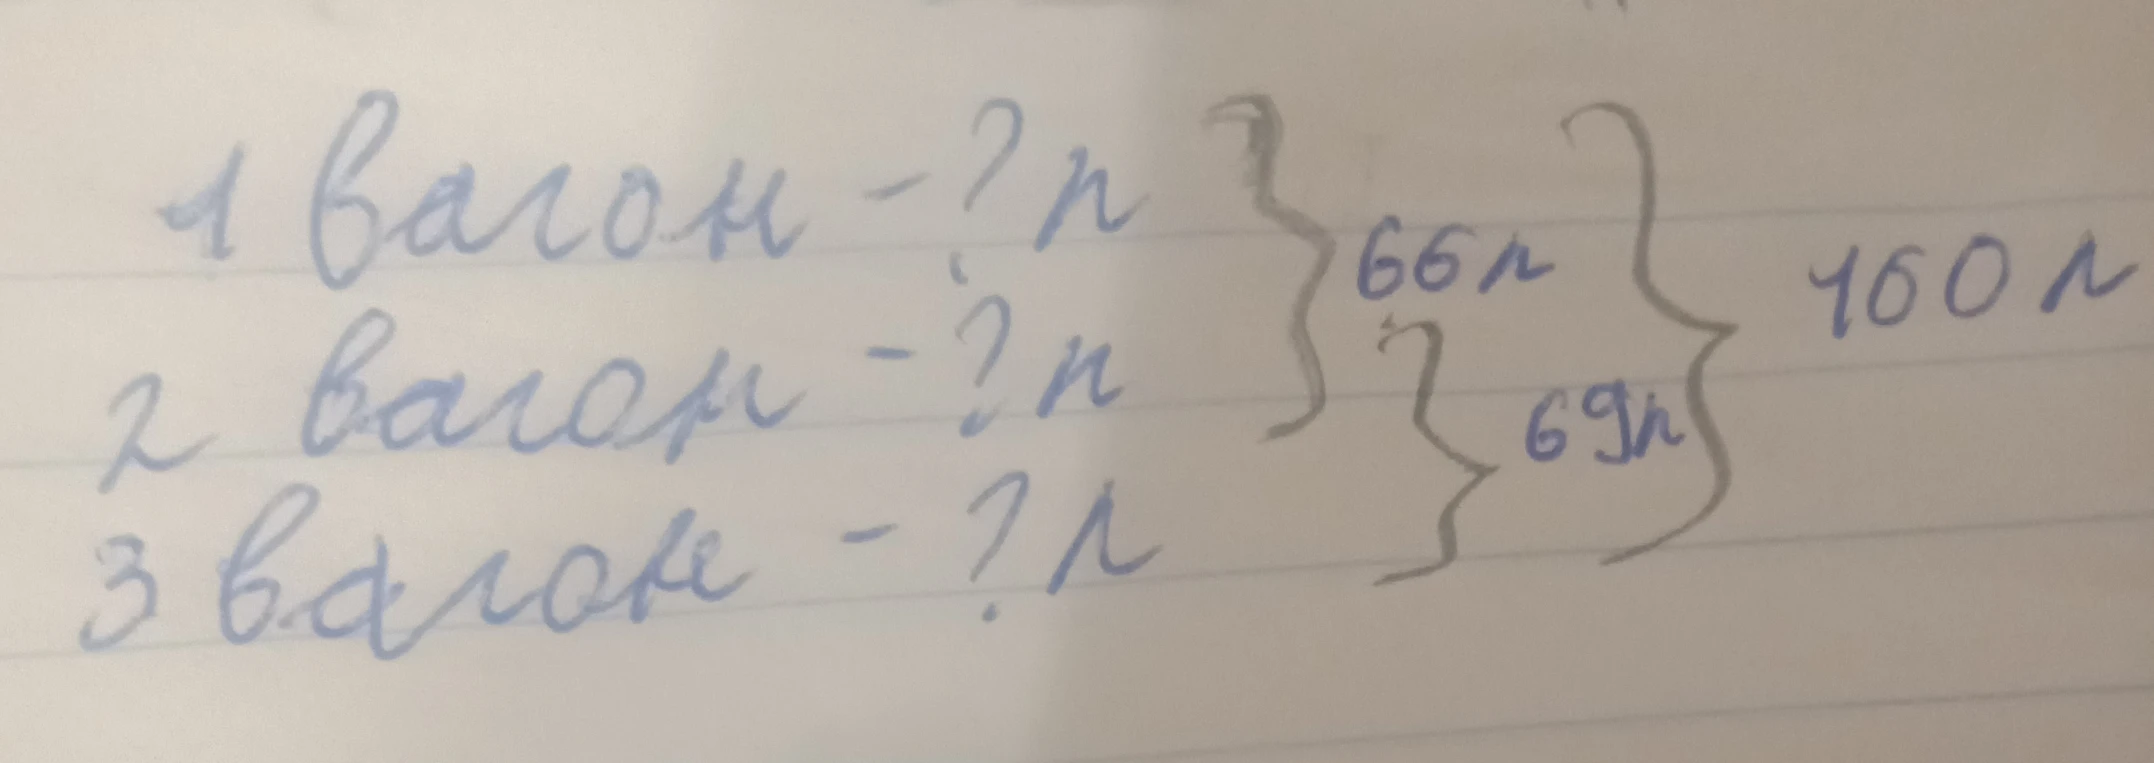 1 вагон - ? п
2 вагон - ? п
3 вагон - ? п
66 п
69 п
100 п